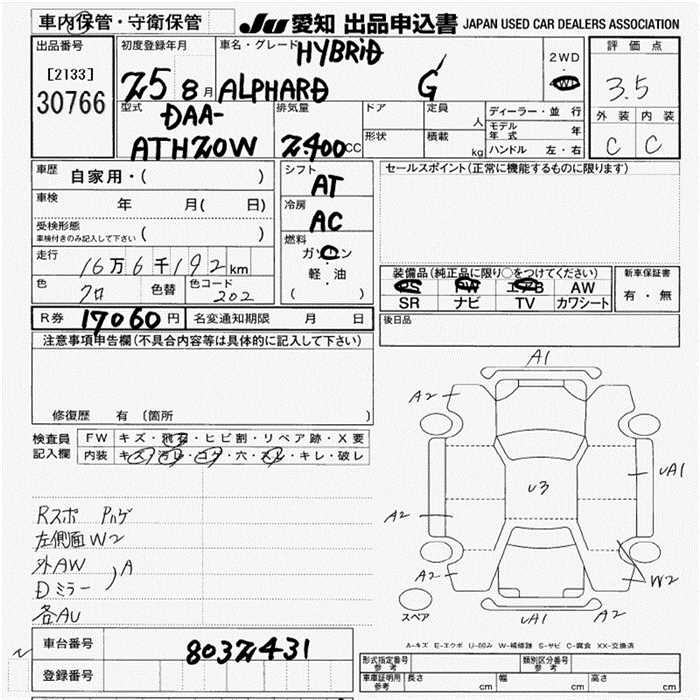 車内保管・守衛保管
JU 愛知 出品申込書 JAPAN USED CAR DEALERS ASSOCIATION
出品番号
[2133]
30766
初度登録年月
25 8 月
車名・グレード
HYBRID
ALPHARD G
2WD
4WD
評価点
3.5
外装 内装
C C
型式
DAA-
ATH20W
排気量
2400 CC
ドア
定員 人
形状
積載 kg
ディーラー・並行
モデル年式 年
ハンドル 左・右
車歴 自家用・( )
車検 年 月( 日)
受検形態
車検付きのみ記入して下さい ( )
走行 16万6千192km
色 クロ 色替 色コード 202
シフト
AT
冷房
AC
燃料
ガソリン
・
軽・油
( )
セールスポイント(正常に機能するものに限ります)
装備品(純正品に限り○をつけてください)
PS PW エアB AW
SR ナビ TV カワシート
新車保証書
有・無
R券 17060円 名変通知期限 月 日
後日品
注意事項申告欄(不具合内容等は具体的に記入して下さい)
修復歴 有 〔箇所 〕
検査員記入欄
FW キズ・飛石・ヒビ割・リペア跡・X要
内装 キズ・汚レ・コゲ・穴・スレ・キレ・破レ
Rスポ Pハゲ
左側面W2
外AW
Dミラー A
各AU
A1
A2
U3
UA1
A2
A2
W2
UA1
A2
スペア
A-キズ E-エクボ U-凹み W-補修跡 S-サビ C-腐食 XX-交換済
車台番号 8032431
登録番号
形式指定番号 参考
類別区分番号 参考
車庫証明用 参考 長さ cm 幅 cm 高さ cm